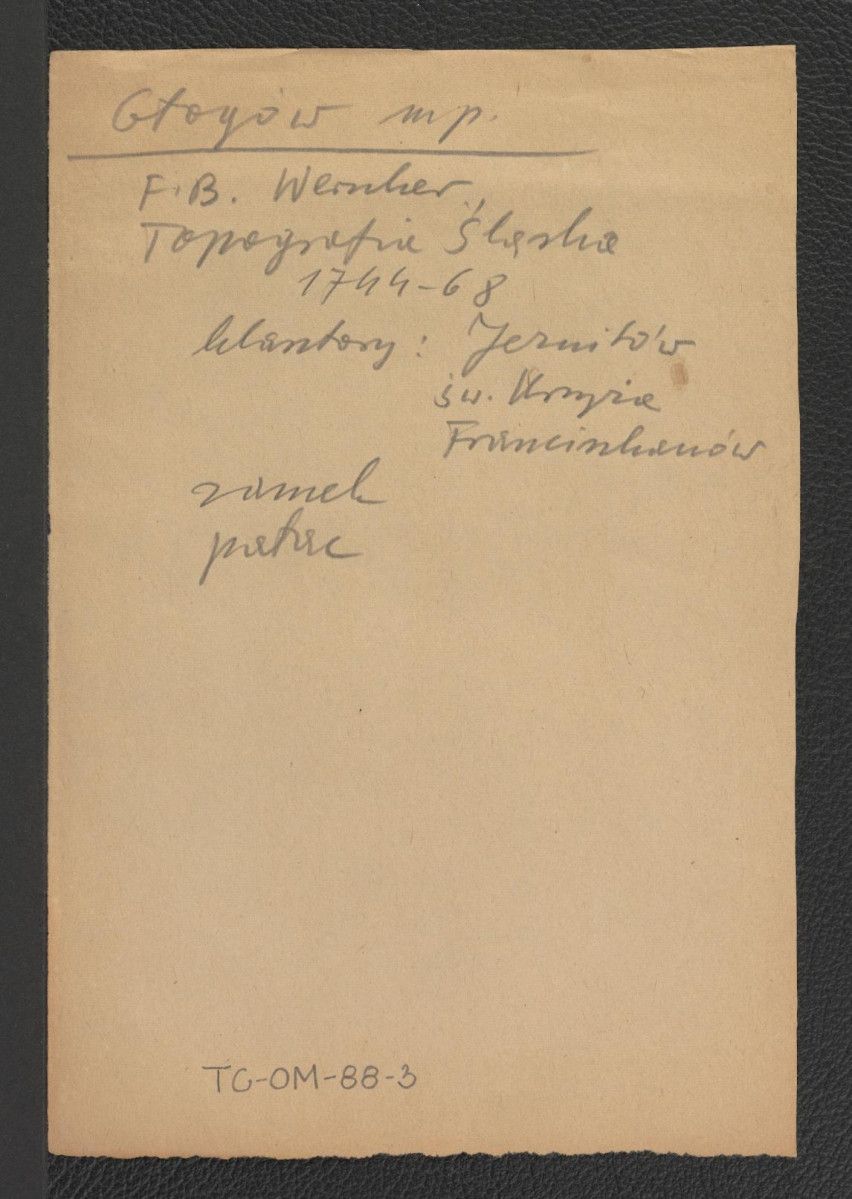 Głogów mp.
F.B. Wernher,
Topografia Śląska
1744-68
klasztory: Jezuitów
św. Krzyża
Franciszkanów
zamek
pałac
TG-OM-88-3